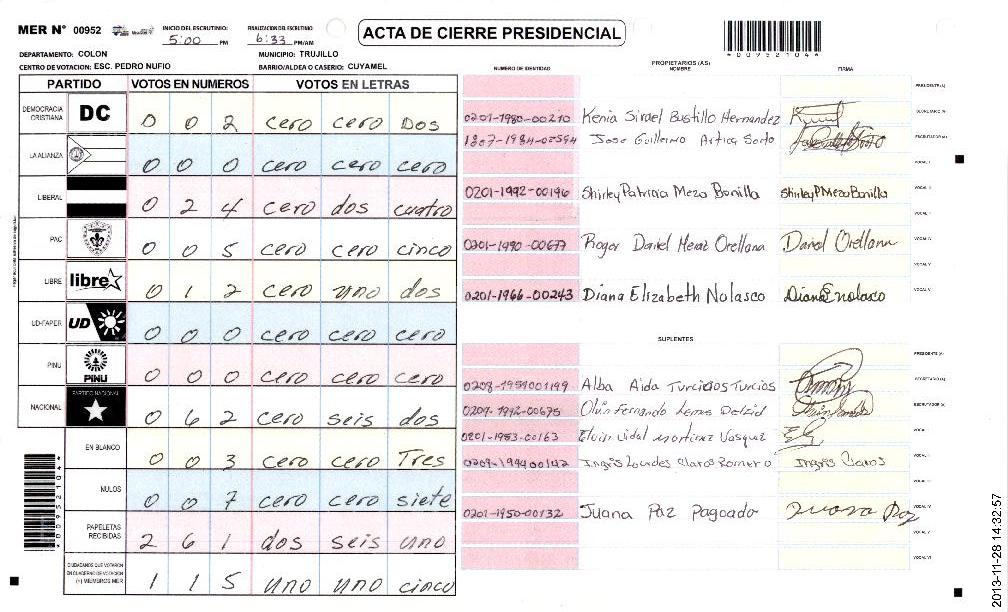 MER N° 00952
INICIO DEL ESCRUTINIO: 5:00 PM
FINALIZACION DEL ESCRUTINIO 6:33 PM/AM
ACTA DE CIERRE PRESIDENCIAL
*00952104*
DEPARTAMENTO: COLON
MUNICIPIO: TRUJILLO
CENTRO DE VOTACION: ESC. PEDRO NUFIO
BARRIO/ALDEA O CASERIO: CUYAMEL
PARTIDO VOTOS EN NUMEROS VOTOS EN LETRAS
DEMOCRACIA CRISTIANA DC 0 0 2 cero cero Dos
LA ALIANZA 0 0 0 cero cero cero
LIBERAL 0 2 4 cero dos cuatro
PAC 0 0 5 cero cero cinco
LIBRE libre 0 1 2 cero uno dos
UD-FAPER UD 0 0 0 cero cero cero
PINU PINU 0 0 0 cero cero cero
NACIONAL PARTIDO NACIONAL 0 6 2 cero seis dos
EN BLANCO 0 0 3 cero cero Tres
NULOS 0 0 7 cero cero siete
PAPELETAS RECIBIDAS 2 6 1 dos seis uno
CIUDADANOS QUE VOTARON EN CUADERNO DE VOTACION (+) MIEMBROS MER 1 1 5 uno uno cinco
*00952104*
NUMERO DE IDENTIDAD
PROPIETARIOS (AS)
NOMBRE
FIRMA
PRESIDENTE (A)
0201-1980-00210 Kenia Sirael Bustillo Hernandez SECRETARIO (A)
1807-1984-00594 Jose Guillermo Artica Sorto ESCRUTADOR (A)
VOCAL I
0201-1992-00196 Shirley Patricia Meza Bonilla Shirley P Meza Bonilla VOCAL II
0201-1990-00677 Roger Daniel Meraz Orellana Daniel Orellana VOCAL IV
VOCAL V
0201-1966-00243 Diana Elizabeth Nolasco Diana E nolasco
SUPLENTES
PRESIDENTE (A)
0208-1959001199 Alba Aida Turcios Turcios SECRETARIO (A)
0209-1992-00675 Olvin Fernando Lemus ESCRUTADOR (A)
0201-1983-00163 Elvin Vidal Martinez Vasquez VOCAL I
0209-199400142 Ingris Lourdes Claros Romero Ingris Claros
0201-1950-00132 Juana Paz Pagoado Juana Paz VOCAL IV
VOCAL V
VOCAL VI
2013-11-28 14:32:57